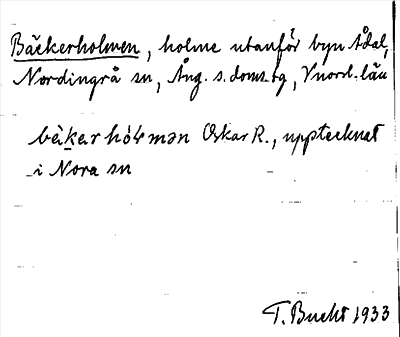 Bäckerholmen, holme utanför byn Ådal,
Nordingrå sn, Ång. s. doms.ag, Vnorrl. län
Oskar R., upptecknat
i Nora sn
T. Bucht 1933